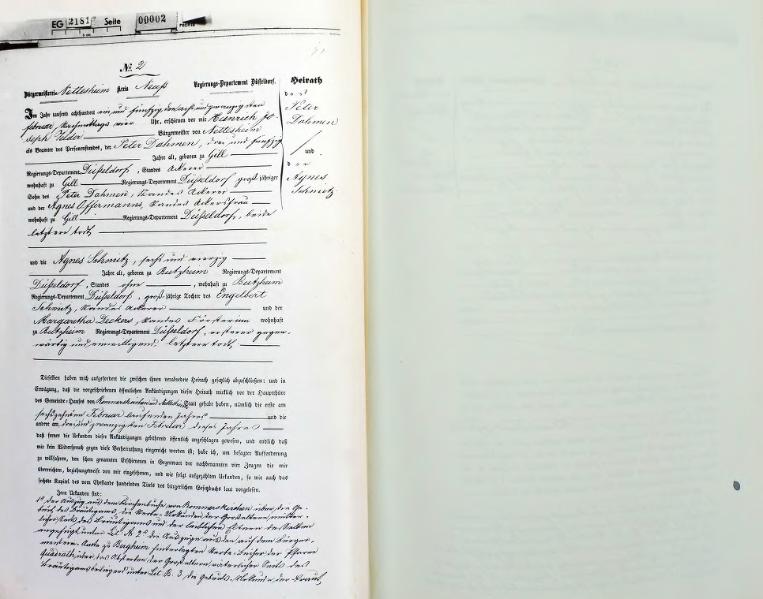 EG 2181 Seite 00002
№ 2
Bürgermeisterei Nettesheim Kreis Neuß Regierungs-Departement Düsseldorf.
Heirath
des
Peter
Dahmen
und
der
Agnes
Schmitz
Im Jahr tausend achthundert ein und fünfzig den acht und zwanzigsten
Februar, Nachmittags vier Uhr, erschienen vor mir Heinrich Jo-
seph Bürgermeister von Nettesheim
als Beamter des Personenstandes, der Peter Dahmen, drei und fünfzig
Jahre alt, geboren zu Gill
Regierungs-Departement Düsseldorf, Standes Ackerer
wohnhaft zu Gill Regierungs-Departement Düsseldorf großjähriger
Sohn des Peter Dahmen, Standes Ackerer
und der Agnes Offermanns, Standes Ackersfrau
wohnhaft zu Gill Regierungs-Departement Düsseldorf, beide
letztere todt,
und die Agnes Schmitz, sechs und vierzig
Jahre alt, geboren zu Butzheim Regierungs-Departement
Düsseldorf, Standes ohne, wohnhaft zu Butzheim
Regierungs-Departement Düsseldorf, großjährige Tochter des Engelbert
Schmitz, Standes Ackerer und der
Margaretha Deckers, Standes wohnhaft
zu Butzheim Regierungs-Departement Düsseldorf, ersterer gegen-
wärtig und einwilligend, letztere todt,
Dieselben haben mich aufgefordert die zwischen ihnen verabredete Heirath gesetzlich abzuschließen; und in
Erwägung, daß die vorgeschriebenen öffentlichen Ankündigungen dieser Heirath wirklich vor der Hauptthüre
des Gemeinde-Hauses von Rommerskirchen und Nettesheim Statt gehabt haben, nämlich die erste am
sechszehnten Februar laufenden Jahres und die
andere am drei und zwanzigsten Februar dieses Jahres
daß ferner die Urkunden dieser Ankündigungen gebührend öffentlich angeschlagen gewesen, und endlich daß
mir kein Widerspruch gegen diese Verheirathung eingereicht worden ist; habe ich, um besagter Aufforderung
zu willfahren, den schon genannten Erschienenen in Gegenwart der nachbenannten vier Zeugen die mir
überreichten, beziehungsweise von mir eingesehenen, und wie folgt aufgezählten Urkunden, so wie auch das
sechste Kapitel des vom Ehestande handelnden Titels des bürgerlichen Gesetzbuchs laut vorgelesen.
Jene Urkunden sind:
1° der Auszug aus dem Kirchenbuche von Rommerskirchen über die Ge-
burt des Bräutigams, die Sterbe-Urkunden der Großeltern mütter-
licher Seits des Bräutigams und der Eltern desselben
angefügt unter Lit. A. 2° die Auszüge aus den auf dem Bürger-
meister-Amte zu Bergheim hinterlegten Sterbe-Bücher der Pfarre
Quadrath, über das Absterben der Großeltern väterlicher Seits des
Bräutigams beiliegend unter Lit. B. 3 die Geburts-Urkunde der Braut